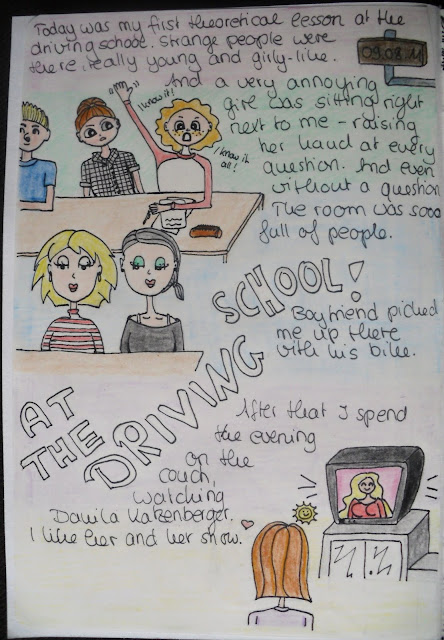 Today was my first theoretical lesson at the
driving school. Strange people were
there, really young and girly-like.
09.08.11
And a very annoying
girl was sitting right
next to me - raising
her hand at every
question. And even
without a question
The room was sooo
full of people.
I know it!
I know it
all!
AT
THE
DRIVING
SCHOOL!
Boyfriend picked
me up there
with his bike.
After that I spend
the evening
on the
couch,
watching
Daniela Katzenberger.
I like her and her show.